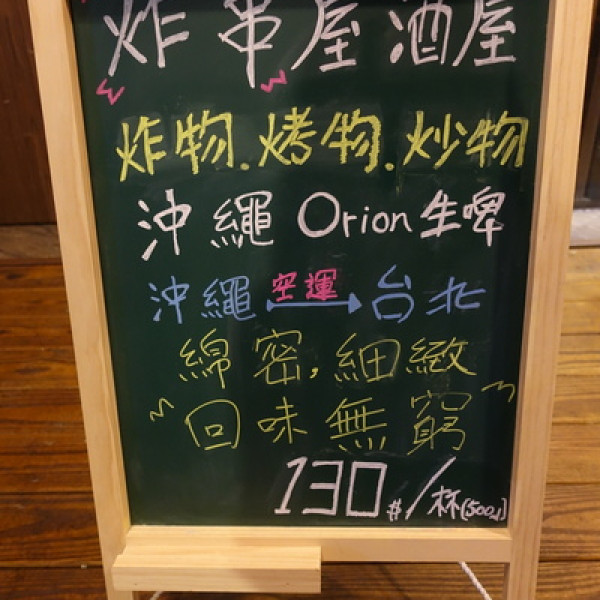 炸串屋酒屋
炸物.烤物.炒物
沖繩 Orion 生啤
空運
沖繩 → 台北
綿密,細緻
回味無窮
130#/杯(500ml)